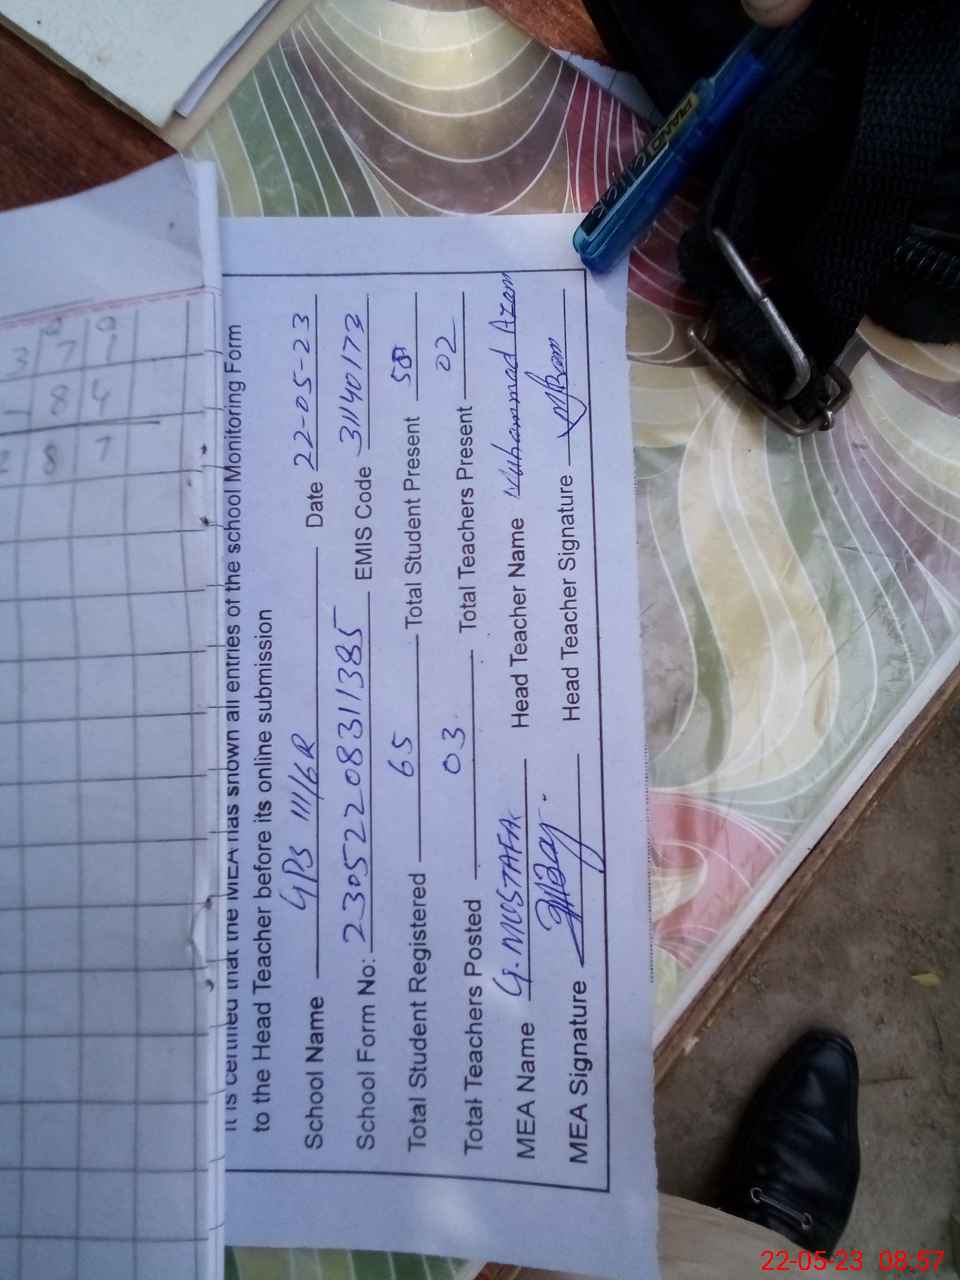 It is certified that the MEA has shown all entries of the school Monitoring Form
to the Head Teacher before its online submission
School Name GPS 111/6R Date 22-05-23
School Form No: 23052208311385 EMIS Code 31140173
Total Student Registered 65 Total Student Present 50
Total Teachers Posted 03 Total Teachers Present 02
MEA Name G. MUSTAFA Head Teacher Name Muhammad Azam
MEA Signature Head Teacher Signature
PIANO
22-05-23 08:57